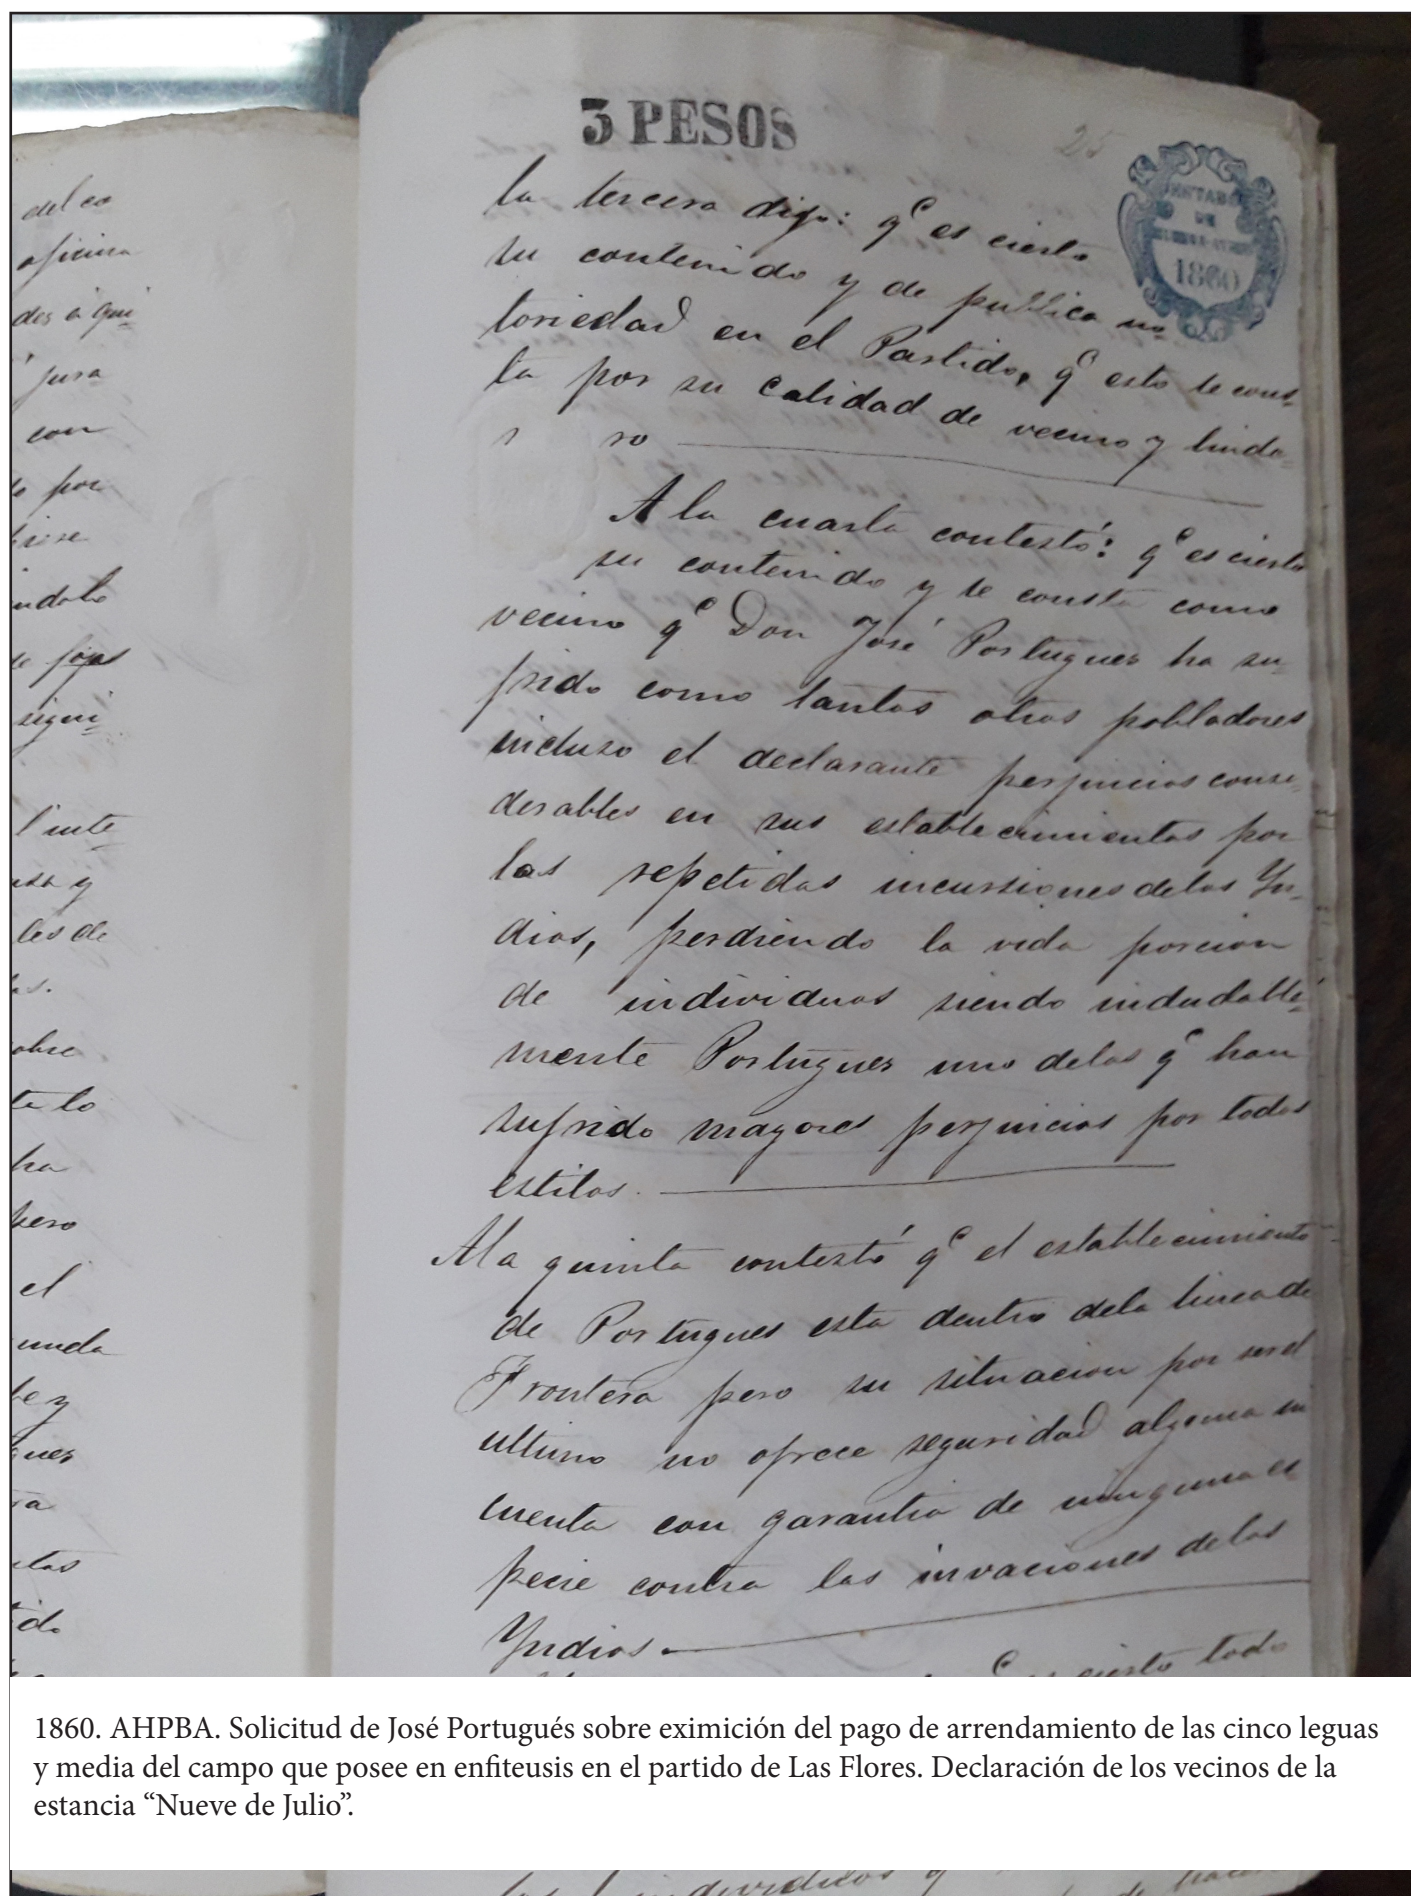 del co
oficina
des á qui
jura
con
por
ndole
sigui
l inte
y
les de
obre
ta lo
ha
pero
el
unda
be y
gues
ra
do
3 PESOS
25
ESTADO
DE
BUENOS-AYRES
1860
la tercera dijo: qe es cierto
su contenido y de publica no
toriedad en el Partido, qe esto le cons
ta por su calidad de vecino y linde
ro
A la cuarta contestó: qe es cierto
su contenido y le consta como
vecino qe Don José Portugues ha su
frido como tantos otros pobladores
incluso el declarante perjuicios consi
derables en sus establecimientos por
las repetidas incursiones delos Yn
dios, perdiendo la vida porcion
de individuos siendo indudable
mente Portugues uno delos qe han
sufrido mayores perjuicios por todos
estilos.
Ala quinta contestó qe el establecimiento
de Portugues esta dentro dela linea de
Frontera pero su situacion por ser el
ultimo no ofrece seguridad alguna ni
cuenta con garantia de ninguna es
pecie contra las invaciones delos
Yndios
cierto todo
los individuos q
1860. AHPBA. Solicitud de José Portugués sobre eximición del pago de arrendamiento de las cinco leguas
y media del campo que posee en enfiteusis en el partido de Las Flores. Declaración de los vecinos de la
estancia “Nueve de Julio”.